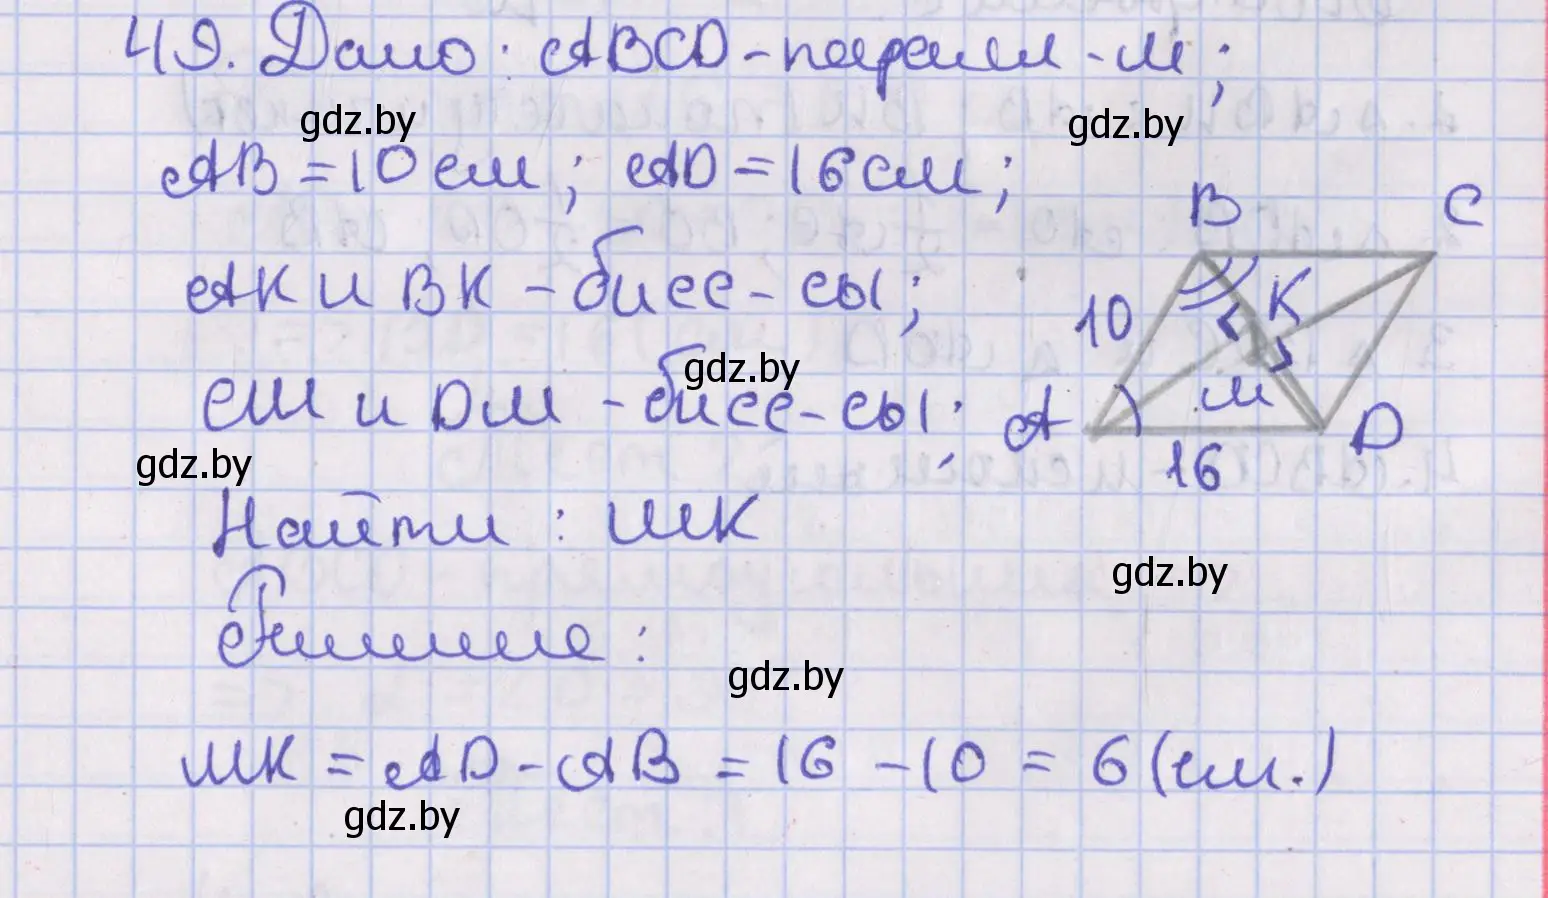 49. Дано: ABCD - паралл-м;
gdz.by
gdz.by
AB = 10 см; AD = 16 см;
AK и BK - бисс-сы;
CM и DM - бисс-сы;
gdz.by
gdz.by
B C
10 K
A M D
16
Найти: MK
gdz.by
Решение:
gdz.by
MK = AD - AB = 16 - 10 = 6 (см.)
gdz.by